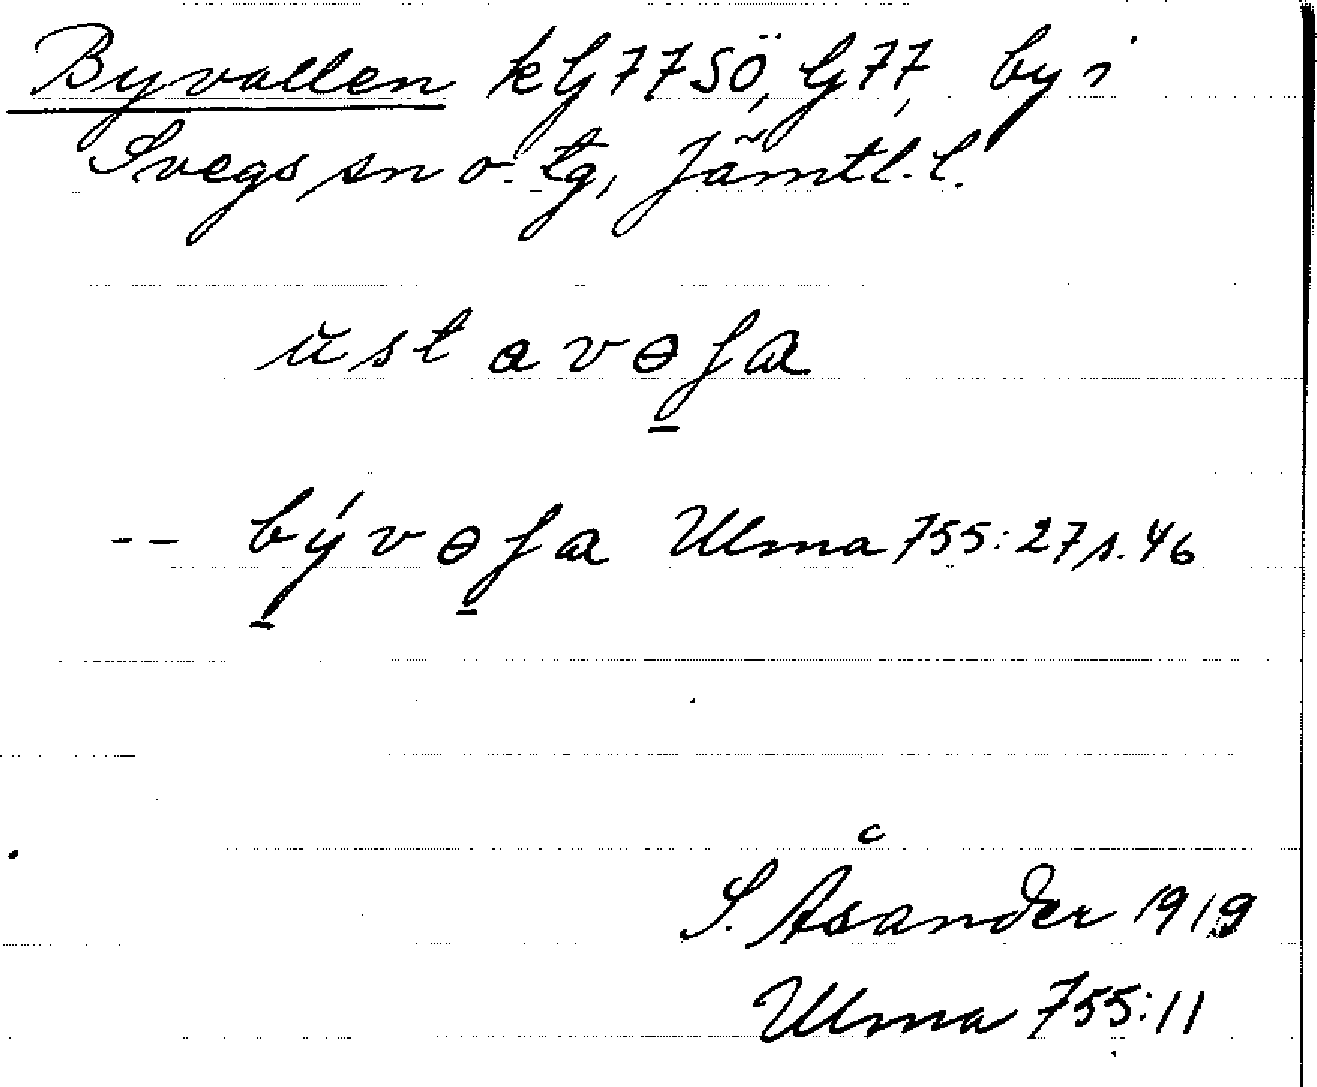 Byvallen k lj 77 SÖ, lj 77, by i
Svegs sn o. tg, Jämtl. l.
ust a v ɵ ʃ a
-- bý v ɵ ʃ a Ulma 755:27 s. 46
S. Åsander 1919
Ulma 755:11